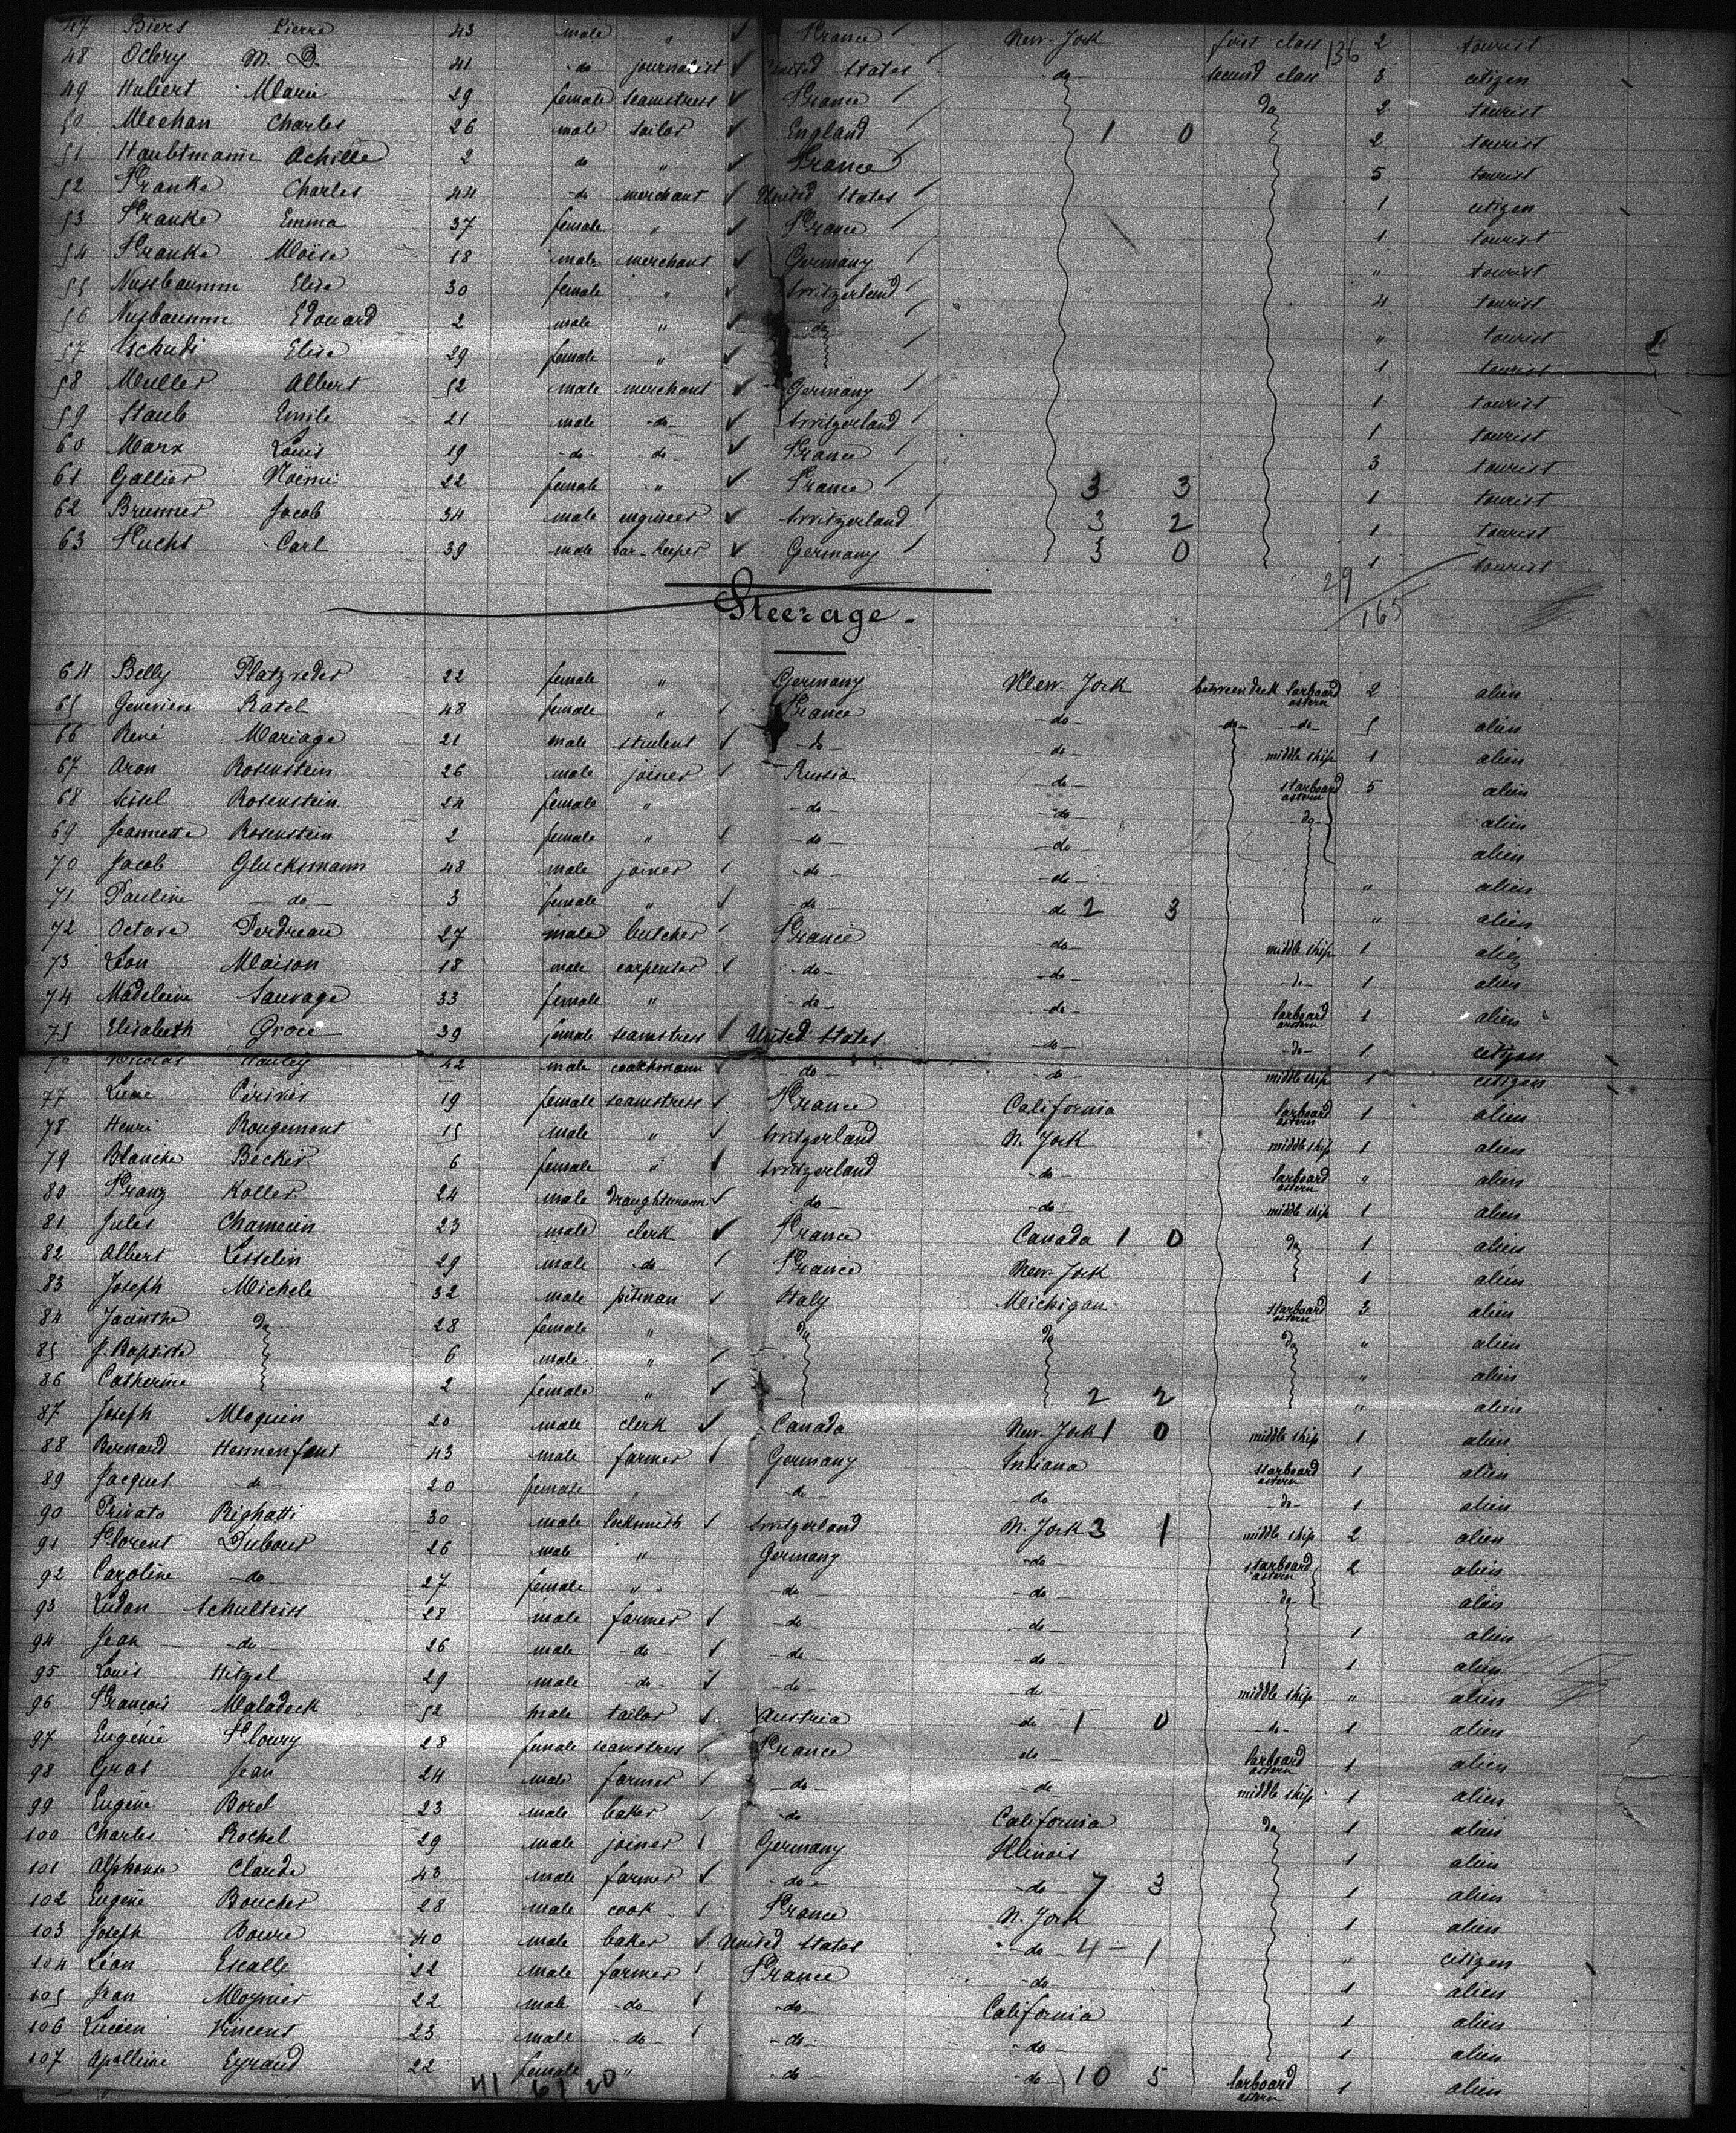 47 Biers Pierre 43 male " ✓ France New-York first class 136 2 tourist
48 M. D. 41 -do- journalist ✓ United States -do- second class 3 citizen
49 Hubert Marie 29 female seamstress ✓ France do 2 tourist
50 Mechan Charles 26 male tailor ✓ England 1 0 2 tourist
51 Haubtmann Achille 2 do " ✓ France 5 tourist
52 Franke Charles 44 -do- merchant ✓ United States 1 citizen
53 Franke Emma 37 female " ✓ France 1 tourist
54 Franke Moïse 18 male merchant ✓ Germany " tourist
55 Nussbaumm Elise 30 female " ✓ Switzerland 4 tourist
56 Nusbaumm Edouard 2 male " ✓ do " tourist
57 Tschudi Elise 29 female " ✓ 1 tourist
58 Muller Albert 52 male merchant ✓ Germany 1 tourist
59 Staub Emile 21 male -do- ✓ Switzerland 1 tourist
60 Marx Louis 19 -do- -do- ✓ France 3 tourist
61 Gallier Noëmi 22 female " ✓ France 3 3 1 tourist
62 Brunner Jacob 34 male engineer ✓ Switzerland 3 2 1 tourist
63 Fuchs Carl 39 male bar-keeper ✓ Germany 3 0 1 tourist
29/165
Steerage-
64 Belly Platzreder 22 female " Germany New-York betweendeck larboard astern 2 alien
65 Geneviève Ratel 48 female " France -do- -do- -do- 5 alien
66 René Mariage 21 male student ✓ -do- -do- middle ship 1 alien
67 Aron Rosenstein 26 male joiner ✓ Russia -do- starboard astern 5 alien
68 Sissel Rosenstein 24 female " -do- -do- -do- alien
69 Jeannette Rosenstein 2 female " -do- -do- alien
70 Jacob Glucksmann 48 male joiner -do- -do- " alien
71 Pauline -do- 3 female " ✓ -do- -do- 2 3 " alien
72 Octave Perdreau 27 male butcher France -do- middle ship 1 alien
73 Léon Maison 18 male carpenter ✓ -do- -do- -do- 1 alien
74 Madeleine Sauvage 33 female " -do- -do- larboard astern 1 alien
75 Elisabeth 39 female seamstress ✓ United States -do- -do- 1 citizen
76 Nicolas 42 male coachmann ✓ -do- -do- middle ship 1 citizen
77 19 female seamstress ✓ France California larboard astern 1 alien
78 Henri Rougemont 15 male " ✓ Switzerland N. York middle ship 1 alien
79 Blanche Becker 6 female " ✓ Switzerland -do- larboard astern " alien
80 Franz Koller 24 male draughtsmann ✓ do -do- middle ship 1 alien
81 Jules Chamecin 23 male clerk ✓ France Canada 1 0 do 1 alien
82 Albert Lesselin 29 male -do- France New-York 1 alien
83 Joseph Michele 32 male pitman ✓ Italy Michigan starboard astern 3 alien
84 Jacinthe do 28 female " do do do " alien
85 J. Baptiste 6 male " ✓ " alien
86 Catherine 2 female " ✓ 2 2 " alien
87 Joseph Moquin 20 male clerk ✓ Canada New-York 1 0 middle ship 1 alien
88 Bernard Hennenfent 43 male farmer ✓ Germany Indiana starboard astern 1 alien
89 Jacques -do- 20 female " -do- -do- -do- 1 alien
90 Privato Righatti 30 male locksmith ✓ Switzerland N. York 3 1 middle ship 2 alien
91 Florent Dubout 26 male " Germany -do- starboard astern 2 alien
92 Caroline -do- 27 female " -do- -do- -do- alien
93 Ludan Schulteiss 28 male farmer ✓ -do- -do- 1 alien
94 Jean -do- 26 male -do- ✓ -do- -do- 1 alien
95 Louis Hitzel 29 male -do- ✓ -do- -do- middle ship " alien
96 François Maladeck 52 male tailor ✓ Austria -do- 1 0 -do- 1 alien
97 Eugénie Floury 28 female seamstress ✓ France do larboard astern 1 alien
98 Gras Jean 24 male farmer ✓ -do- -do- middle ship 1 alien
99 Eugène Borel 23 male baker ✓ -do- California do 1 alien
100 Charles Rochel 29 male joiner ✓ Germany Illinois 1 alien
101 Alphonse Claude 43 male farmer ✓ -do- -do- 7 3 1 alien
102 Eugène Boucher 28 male cook ✓ France N. York 1 alien
103 Joseph Bowre 40 male baker ✓ United States -do- 4-1 " citizen
104 Léon Escalle 22 male farmer France -do- 1 alien
105 Jean Moynier 22 male -do- ✓ -do- California 1 alien
106 Lucien Vincent 23 male -do- -do- -do- 1 alien
107 Apolline Eyraud 22 female " -do- -do- 10 5 larboard astern 1 alien
41 61 20